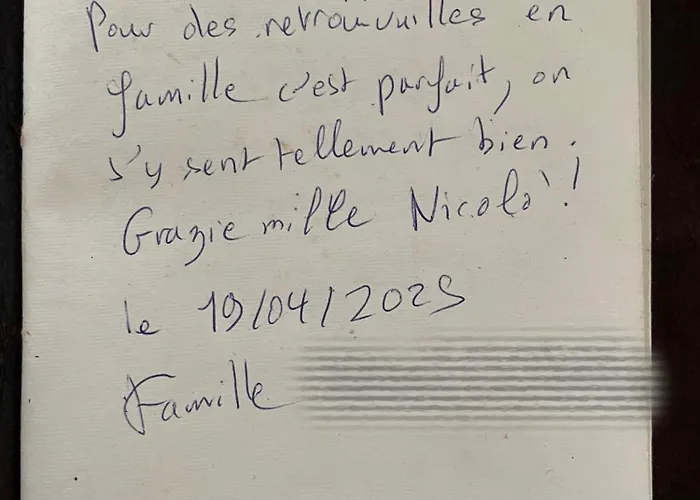 Pour des retrouvailles en
famille c'est parfait, on
s'y sent tellement bien.
Grazie mille Nicolò !
le 19/04/2025
Famille